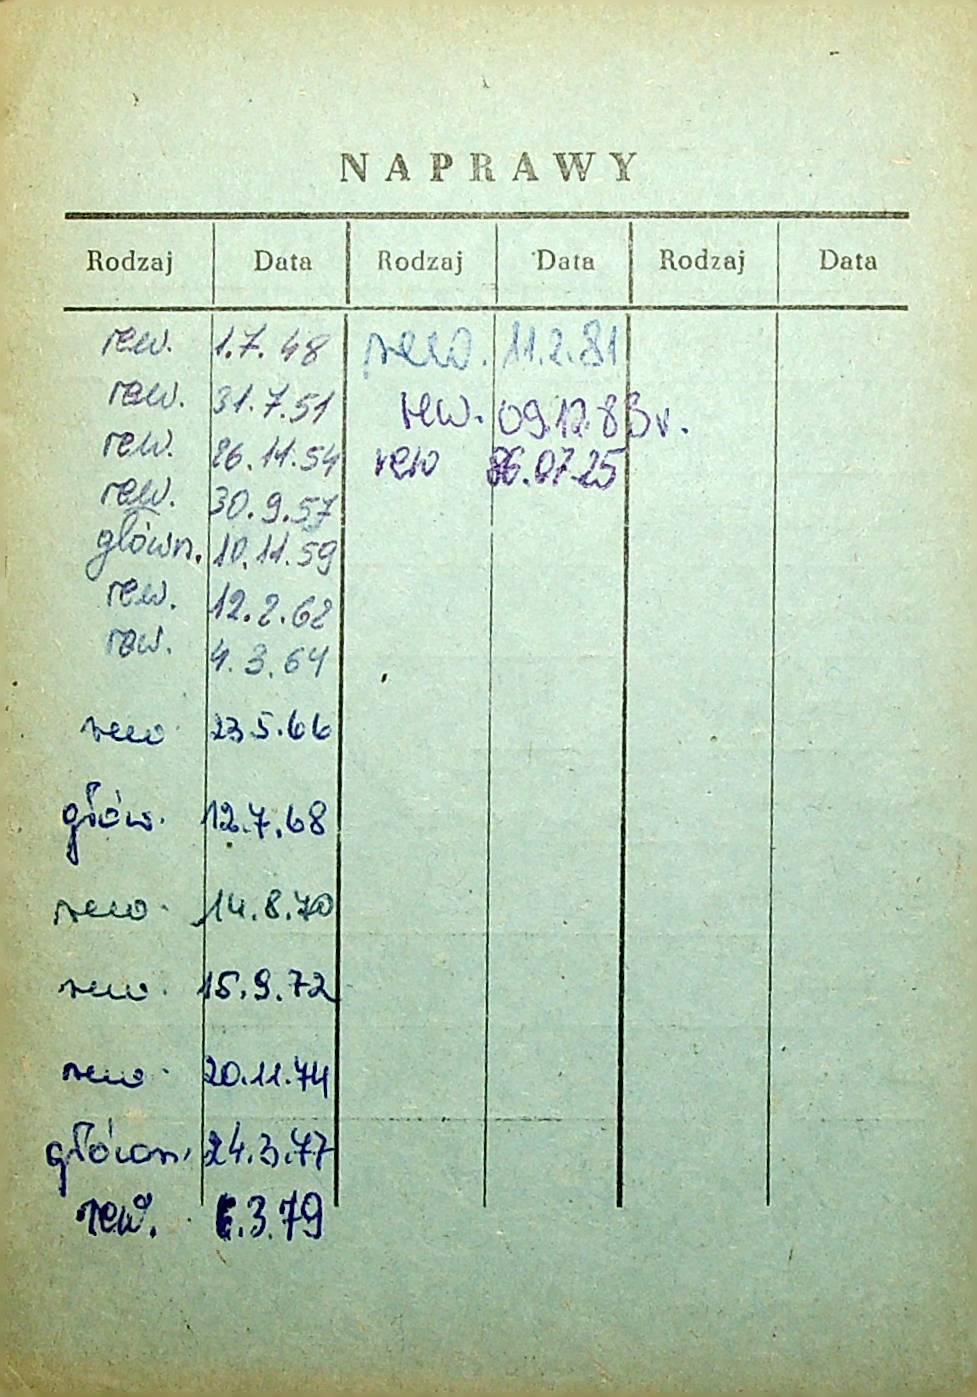 NAPRAWY
Rodzaj Data Rodzaj Data Rodzaj Data
rew. 1.7.48 rew. 11.2.81
rew. 31.7.51 rew. 09.12.83r.
rew. 26.11.54 rew 86.07.25
rew. 30.9.57
główn. 10.11.59
rew. 12.2.62
rew. 4.3.64
rew 23.5.66
głów. 12.7.68
rew. 14.8.70
rew. 15.9.72
rew. 20.11.74
główn. 24.3.77
rew. .3.79